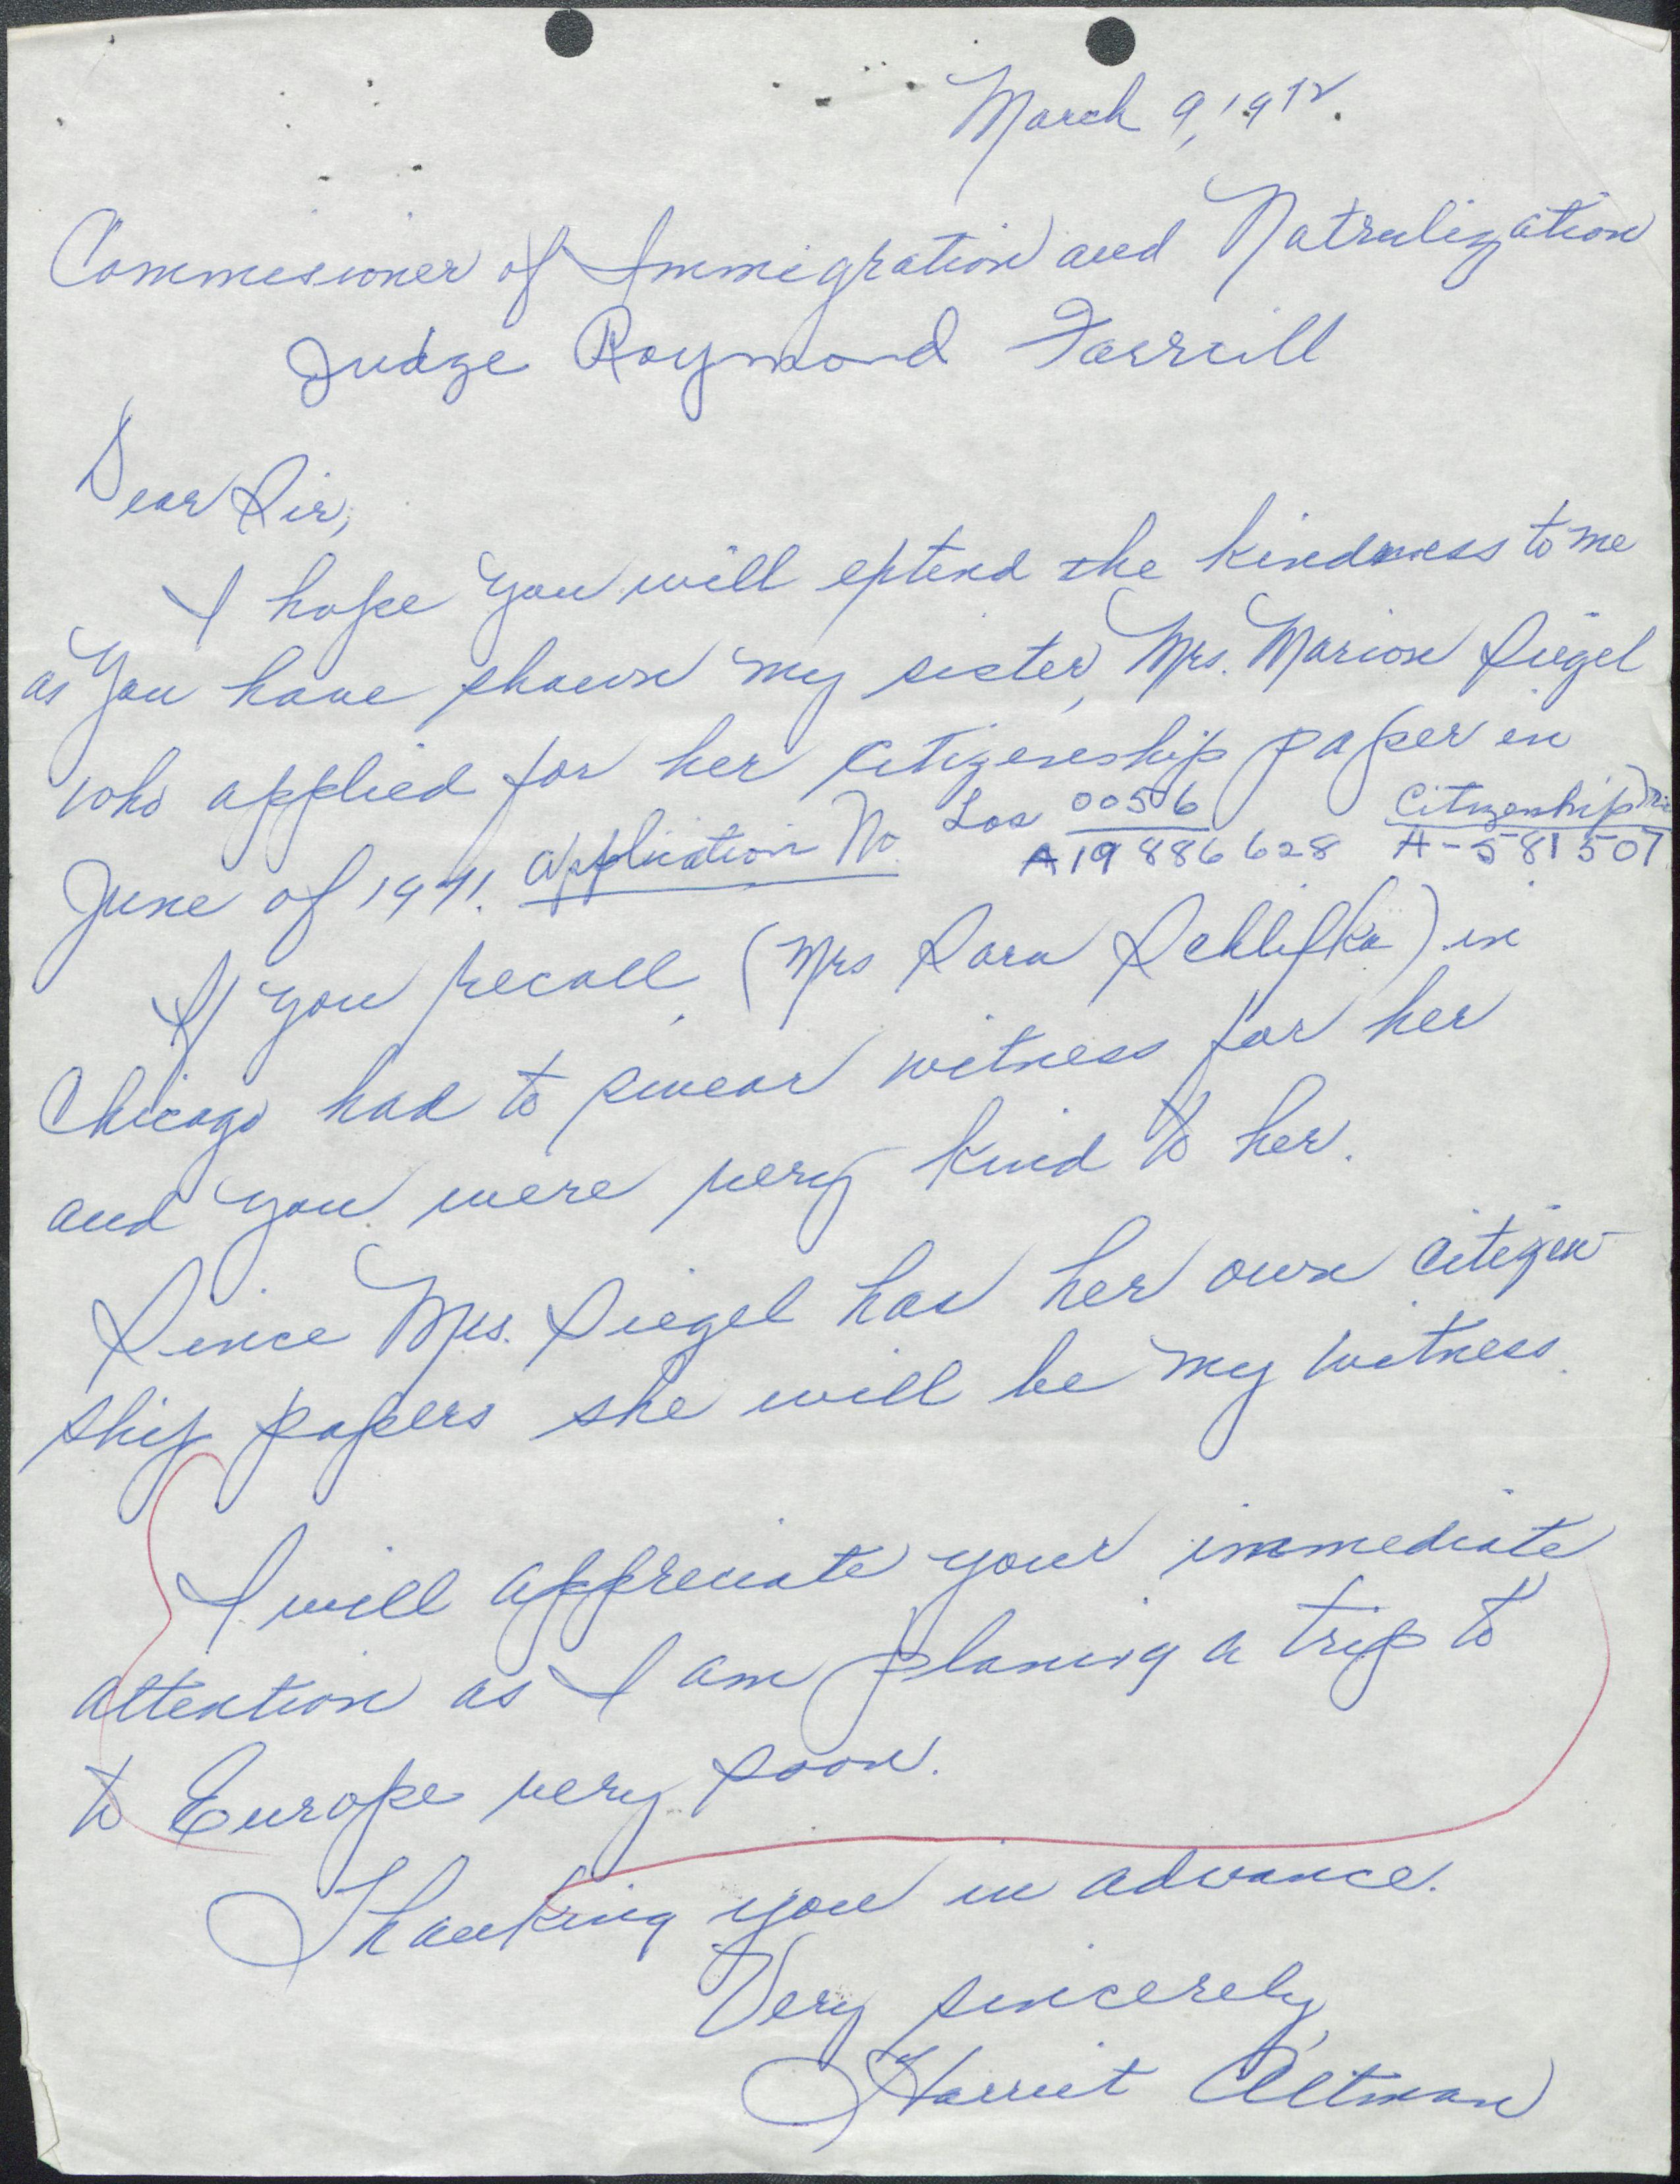 March 9, 1972.
Commisioner of Immigration and Natrulization
Judge Raymond Farrell
Dear Sir,
I hope you will extend the kindness to me
as you have shown my sister, Mrs. Marion Siegel
who applied for her citizenship paper in
June of 1971. Application No. Los 0056 Citizenship
A19 886 628 A-581507
If you recall (Mrs Sara Schlifka) in
Chicago had to swear witness for her
and you were very kind to her.
Since Mrs. Siegel has her own citizen
ship papers she will be my witness.
I will appreciate your immediate
attention as I am planing a trip to
to Europe very soon.
Thanking you in advance.
Very sincerely,
Harriet Altman